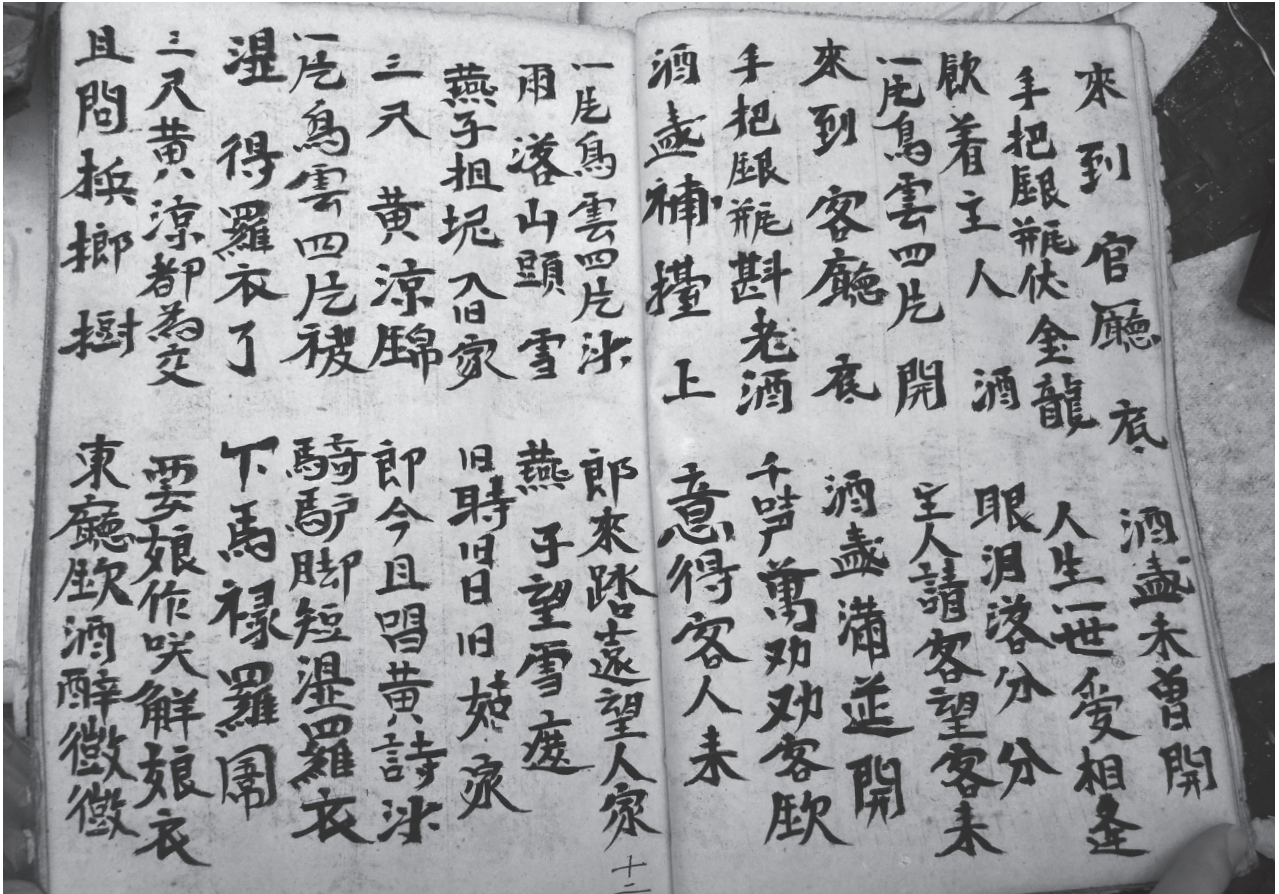 來到官廳底 酒盞未曾開
手把銀瓶伏金龍 人生一世受相逢
飲着主人酒 眼泪落分分
一片鳥雲四片開 主人請客望客未
來到客廳底 酒盞滿莚開
手把銀瓶斟老酒 千萬劝劝客飲
酒盞補擡上 意得客人未
一片鳥雲四片沙 郎來踏遠望人家
雨落山頭雪 燕子望雪遮
燕子担坭入旧家 旧時旧日旧家
三尺黃凉錦 郎今且唱黃詩沙
一片鳥雲四片被 騎馿脚短湿羅衣
湿得羅衣了 下馬禄羅
三尺黃凉都為交 要娘作咲解娘衣
且問梹榔樹 東廳飲酒醉微微
十二